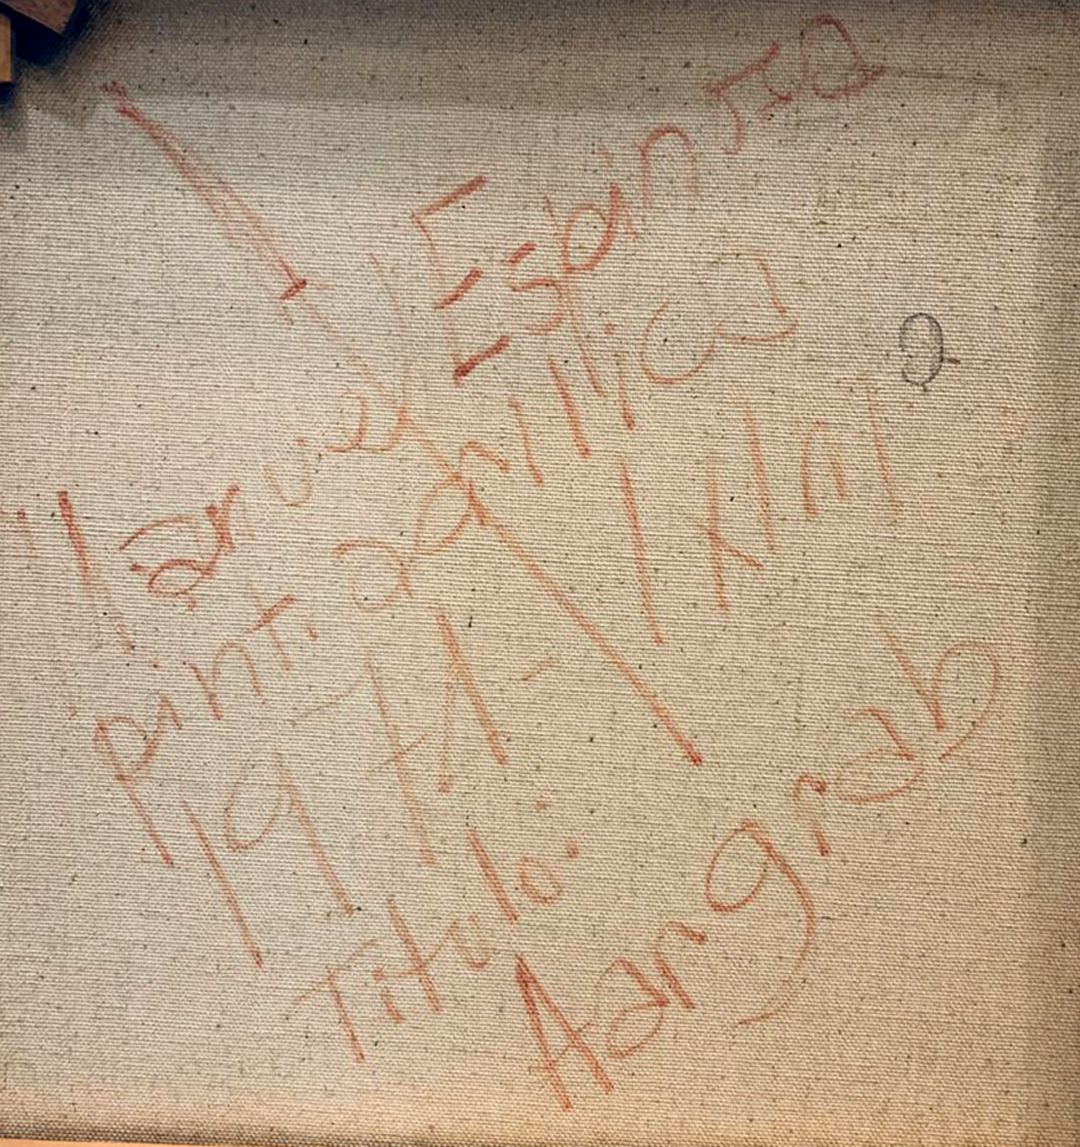 Manuel Espinosa
pint. acrílica 1x1m
Titulo:
Aangrab